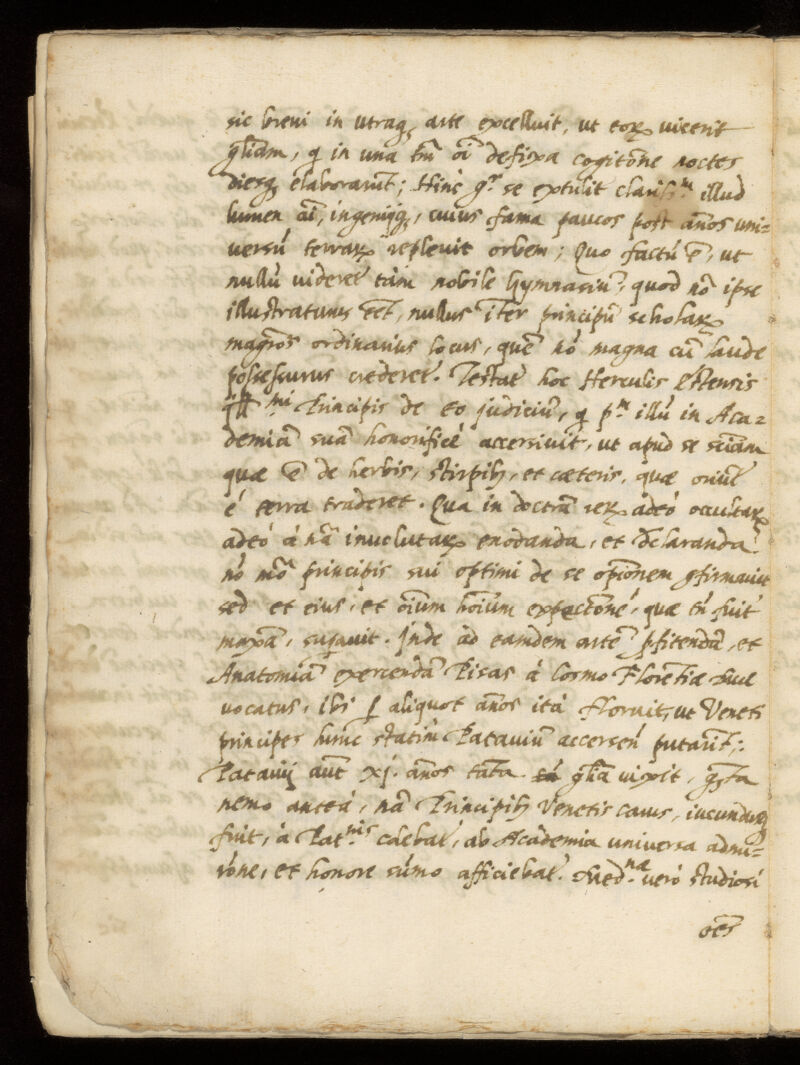 sic brevi in utraq₃ arte excelluit, ut eoꝝ vicerit
gl̃iam, q̃ in una tm̃ oĩ defixa cogitõne noctes
diesq₃ elaborarũt; Hinc g.r se extulit clariss.m illud
lumen aĩ, ingenijq₃, cuius fama paucos post ãnos uni=
versũ terraꝝ replevit orbem; Quo factũ ẽ, ut
nullũ videret̃ tàm nobile Gymnasiũ, quod nõ ipse
illustraturus eẽt, nullus ĩter principũ scholaꝝ
magr̃os ordinarius locus, quẽ nõ magna cũ laude
possessurus crederet̃. Testat̃ hoc Herculis Estensis
Ill.mi Principis de eo judiciũ, q̃ p.m illũ in Aca=
demiã suã honorificè accersivit, ut apud se sciãm
quæ ẽ de herbis, stirpib₃, et cæteris, quæ oriũt̃
è terra traderet. Qua in doctrã reꝝ adeò occultaꝝ
adeò à nã involutaꝝ enodanda, et dclaranda
nõ mõ principis sui optimi de se opĩonem ꝯfirmavit
sed et eius, et oĩum hoĩum expectõne, quæ tñ fuit
maxã, supavit. Inde ad eamdem artẽ ꝓfitendã, et
Anatomiã exercendã Pisas à Cosmo Florẽtiæ Duce
vocatus, ibi ꝑ aliquot ãnos ità floruit, ut Veneti
principes hunc statim Pataviũ accersẽn putarĩt;
Patavij aũt xj. ãnos tãta gl̃ia vixit, q̃ta
nemo anteà, nã Principib₃ Venetis carus, iucundusq₃
fuit, à Pat.nis colebat̃, ab Academia universa admi=
rõne, et honore sũmo afficiebat̃. Med.næ verò studiosi
oẽs